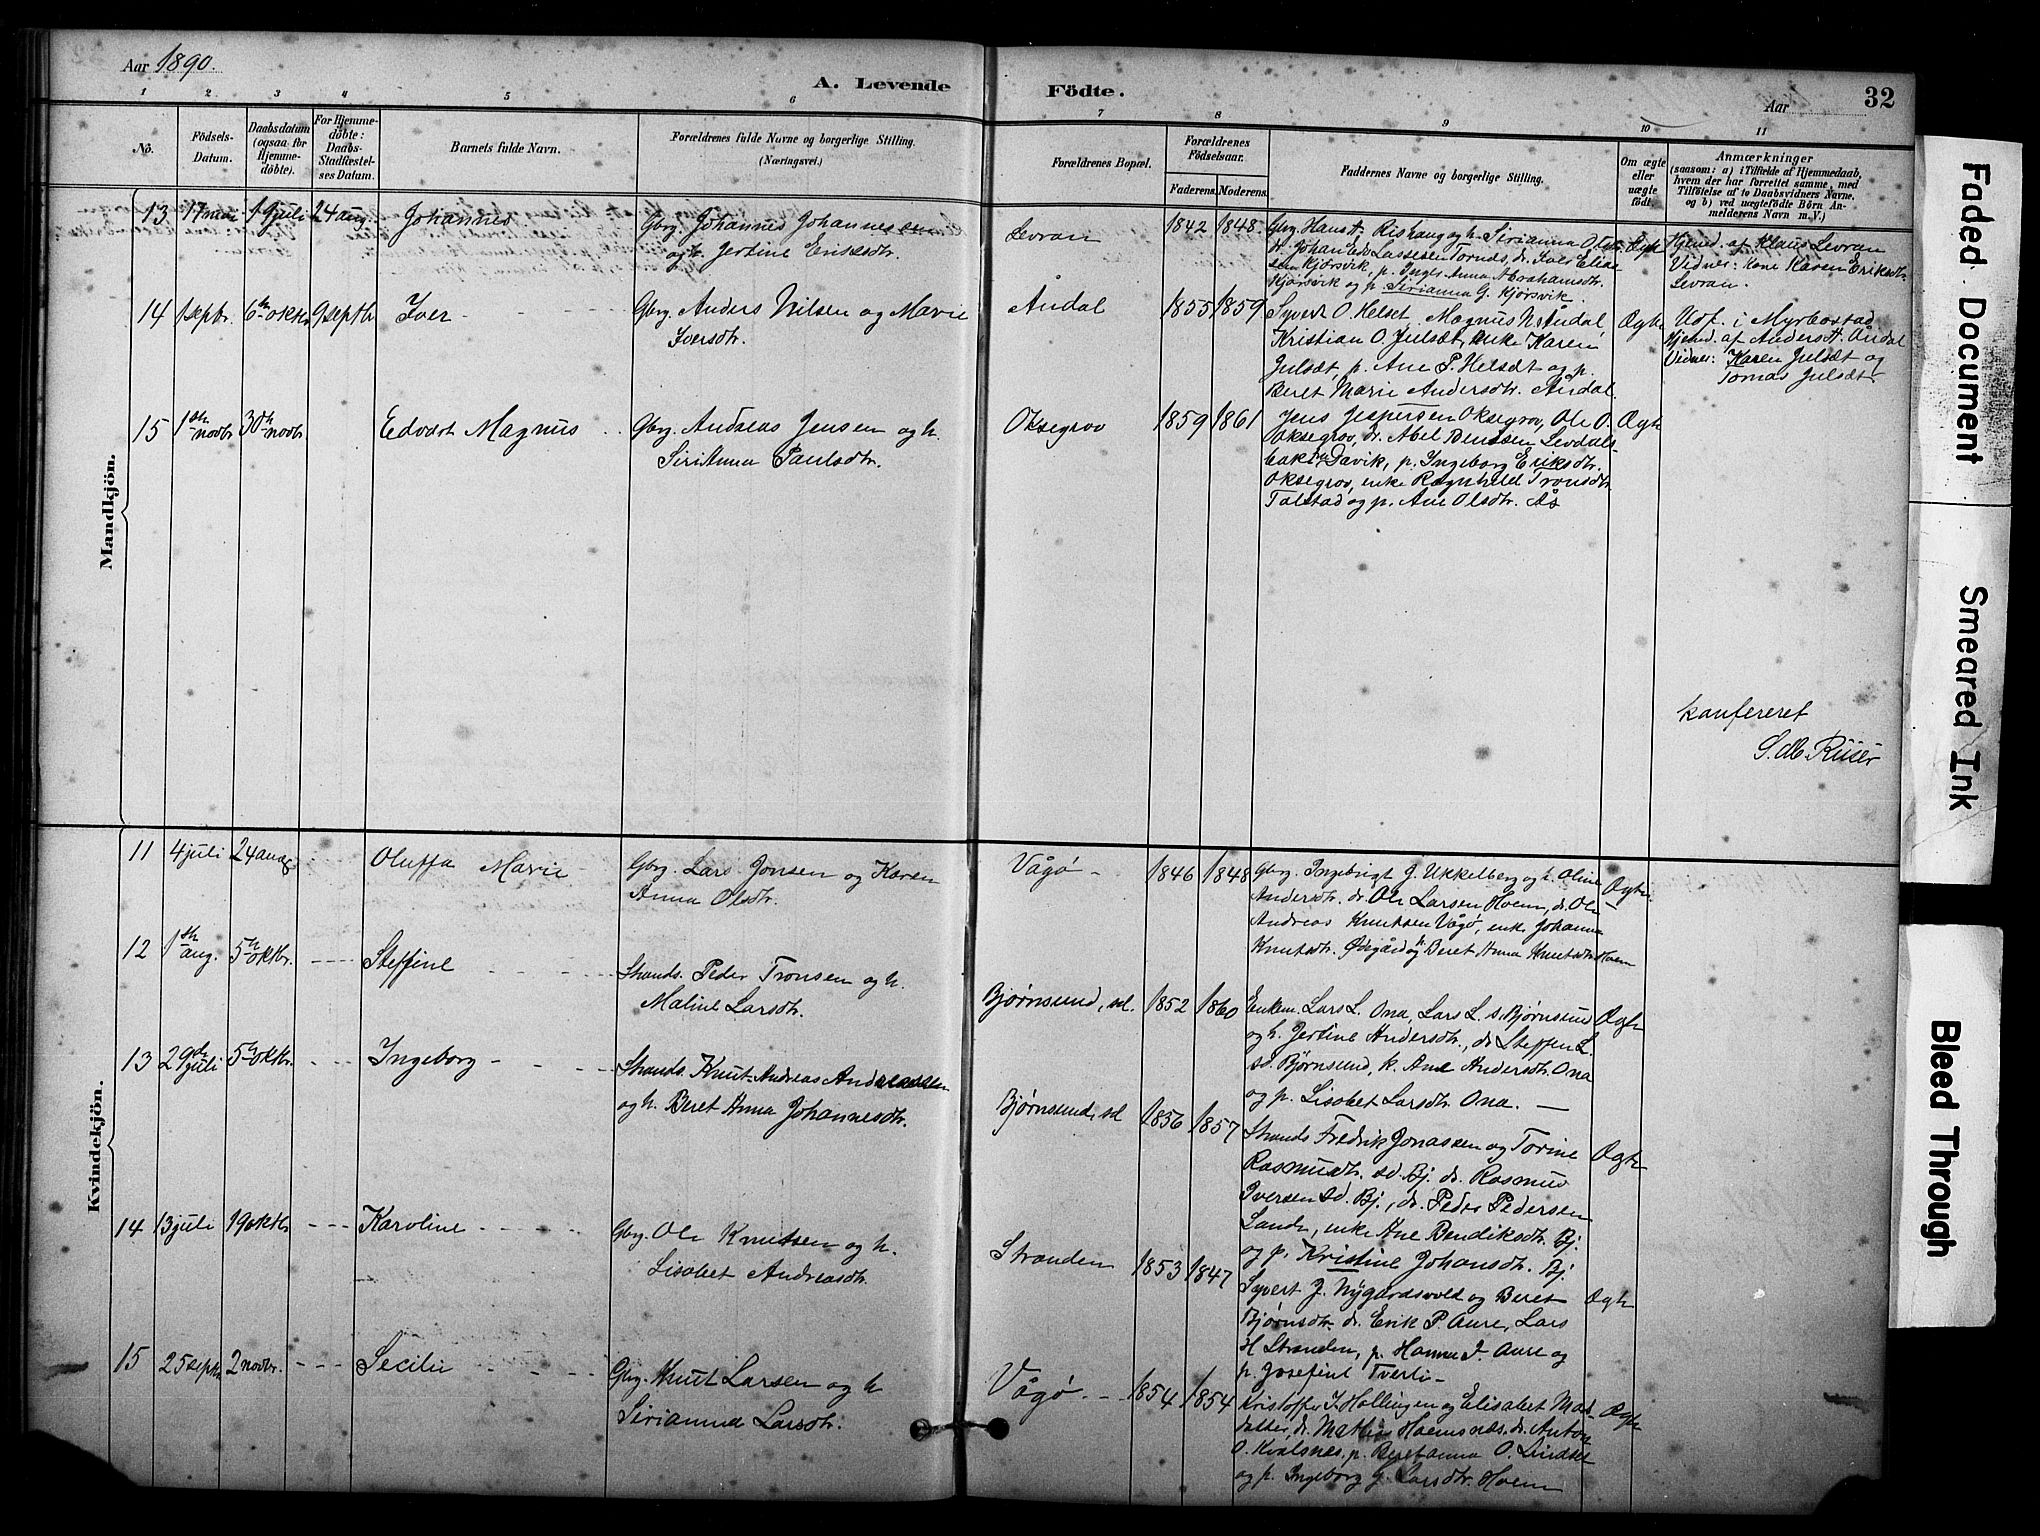 Aar 1890.
A. Levende Födte.
Aar
32
1 2 3 4 5 6 7 8 9 10 11
No.
Födsels-
Datum.
Daabsdatum
(ogsaa for
Hjemme-
döbte).
For Hjemme-
döbte:
Daabs-
Stadfæstel-
ses Datum.
Barnets fulde Navn.
Forældrenes fulde Navne og borgerlige Stilling.
(Næringsvei.)
Forældrenes Bopæl.
Forældrenes
Födselsaar.
Faderens. Moderens.
Faddernes Navne og borgerlige Stilling.
Om ægte
eller
uægte
födt.
Anmærkninger
(saasom: a) i Tilfælde af Hjemmedaab,
hvem der har forrettet samme, med
Tilföielse af to Daabsvidners Navne,
og b) ved uægtefödte Börn An-
melderens Navn m. V.)
Mandkjön.
13 17 mai 1 9 juli 24 aug. Johannes
Gbrg. Johannes Johannessen
og h. Jertine Eriksdtr.
Levran 1842 1848
Gbrg. Hans A. Rishaug og h. Sirianna Olsdtr.
Johan Edv. Lassesen Tornes, dr. Iver Elias
sen Kjørsvik, p. Inger Anna Abrahamsdtr.
Kjørsvik og p. Sirianna G. Kjørsvik.
Ægte
Hjemd. af Klaus Levran
Vidner: kone Karen Eriksdtr.
Levran.
14 1 septbr. 6te oktbr. 9 septbr Iver -
Gbrg. Anders Nilsen og Marie
Iversdtr.
Åndal 1855 1859
Syvert O. Helset, Magnus N. Åndal,
Kristian O. Julsæt, enke Karen
Julsæt, p. Ane P. Helsæt og p.
Beret Marie Andersdtr. Åndal.
Ægte
Udf. i Myrbostad
Hjemd. af Anders A. Åndal
Vidner: Karen Julsæt og
Tomas Julsæt
15 1ste novbr 30te novbr. Edvart Magnus
Gbrg. Andreas Jensen og h.
Siri Anna Paulsdtr.
Oksegrov 1859 1861
Jens Jespersen Oksegrov, Ole O.
Oksegrov, dr. Abel Bentsen Levdals-
bakk, Davik, p. Ingeborg Eriksdtr.
Oksegrov, enke Ragnhild Tronsdtr.
Talstad og p. Ane Olsdtr. Ås
Ægte
konfereret
Riiser
Kvindekjön.
11 4 juli 24 aug. Oluffa Marie
Gbrg. Lars Jonsen og Karen
Anna Olsdtr.
Vågø - 1846 1848
Gbrg. Ingebrigt J. Ukkelberg og h. Oline
Andersdtr. dr. Ole Larsen Hoem, dr. Ole
Andreas Knutsen Vågø, enke Johanna
Knutsdtr. Øvrgård og p. Beret Anna Knutsdtr. Hoem
Ægte
12 1ste aug. 5te oktbr. Steffine
Strands. Peder Tronsen og h.
Maline Larsdtr.
Bjørnsund, sd. 1852 1860
Enkem. Lars L. Ona, Lars L. s. Bjørnsund
og h. Jertine Andersdtr., dr. Steffen L.
sd. Bjørnsund, k. Ane Andersdtr. Ona
og p. Lisabet Larsdtr. Ona.
Ægte
13 29de juli 5te oktbr. Ingeborg -
Strands. Knut Andreas Andreassen
og h. Beret Anna Johannesdtr.
Bjørnsund, sd 1856 1857
Strands Fredrik Jonassen og Torine
Rasmusdtr. sd. Bj. dr. Rasmus
Iversen sd. Bj., dr. Peder Pedersen
Sande, enke Ane Bendiksdtr. Bj.
og p. Kristine Johansdtr. Bj.
Ægte
14 13 juli 19 oktbr. Karoline
Gbrg. Ole Knutsen og h.
Lisabet Andreasdtr.
Stranden 1853 1847
Syvert J. Nygardsvold og Beret
Bjørnsdtr. dr. Erik P. Aure, Lars
H Stranden, p. Hanna J. Aure og
p. Josefine Tverli -
Ægte
15 25 septbr 2 novbr. Secilie
Gbrg. Knut Larsen og h
Sirianna Larsdtr.
Vågø 1854 1854
Kristoffer J. Hollingen og Elisabet Mat-
dr. Mathias Hoemsnes, dr. Anton
O. Kvalsnes, p. Beret Anna O. Lindset
og p. Ingeborg G. Larsdtr. Hoem
Ægte
Faded Document
Smeared Ink
Bleed Through